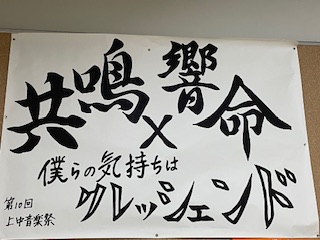 共鳴×響命
僕らの気持ちは
クレッシェンド
第10回
上中音楽祭